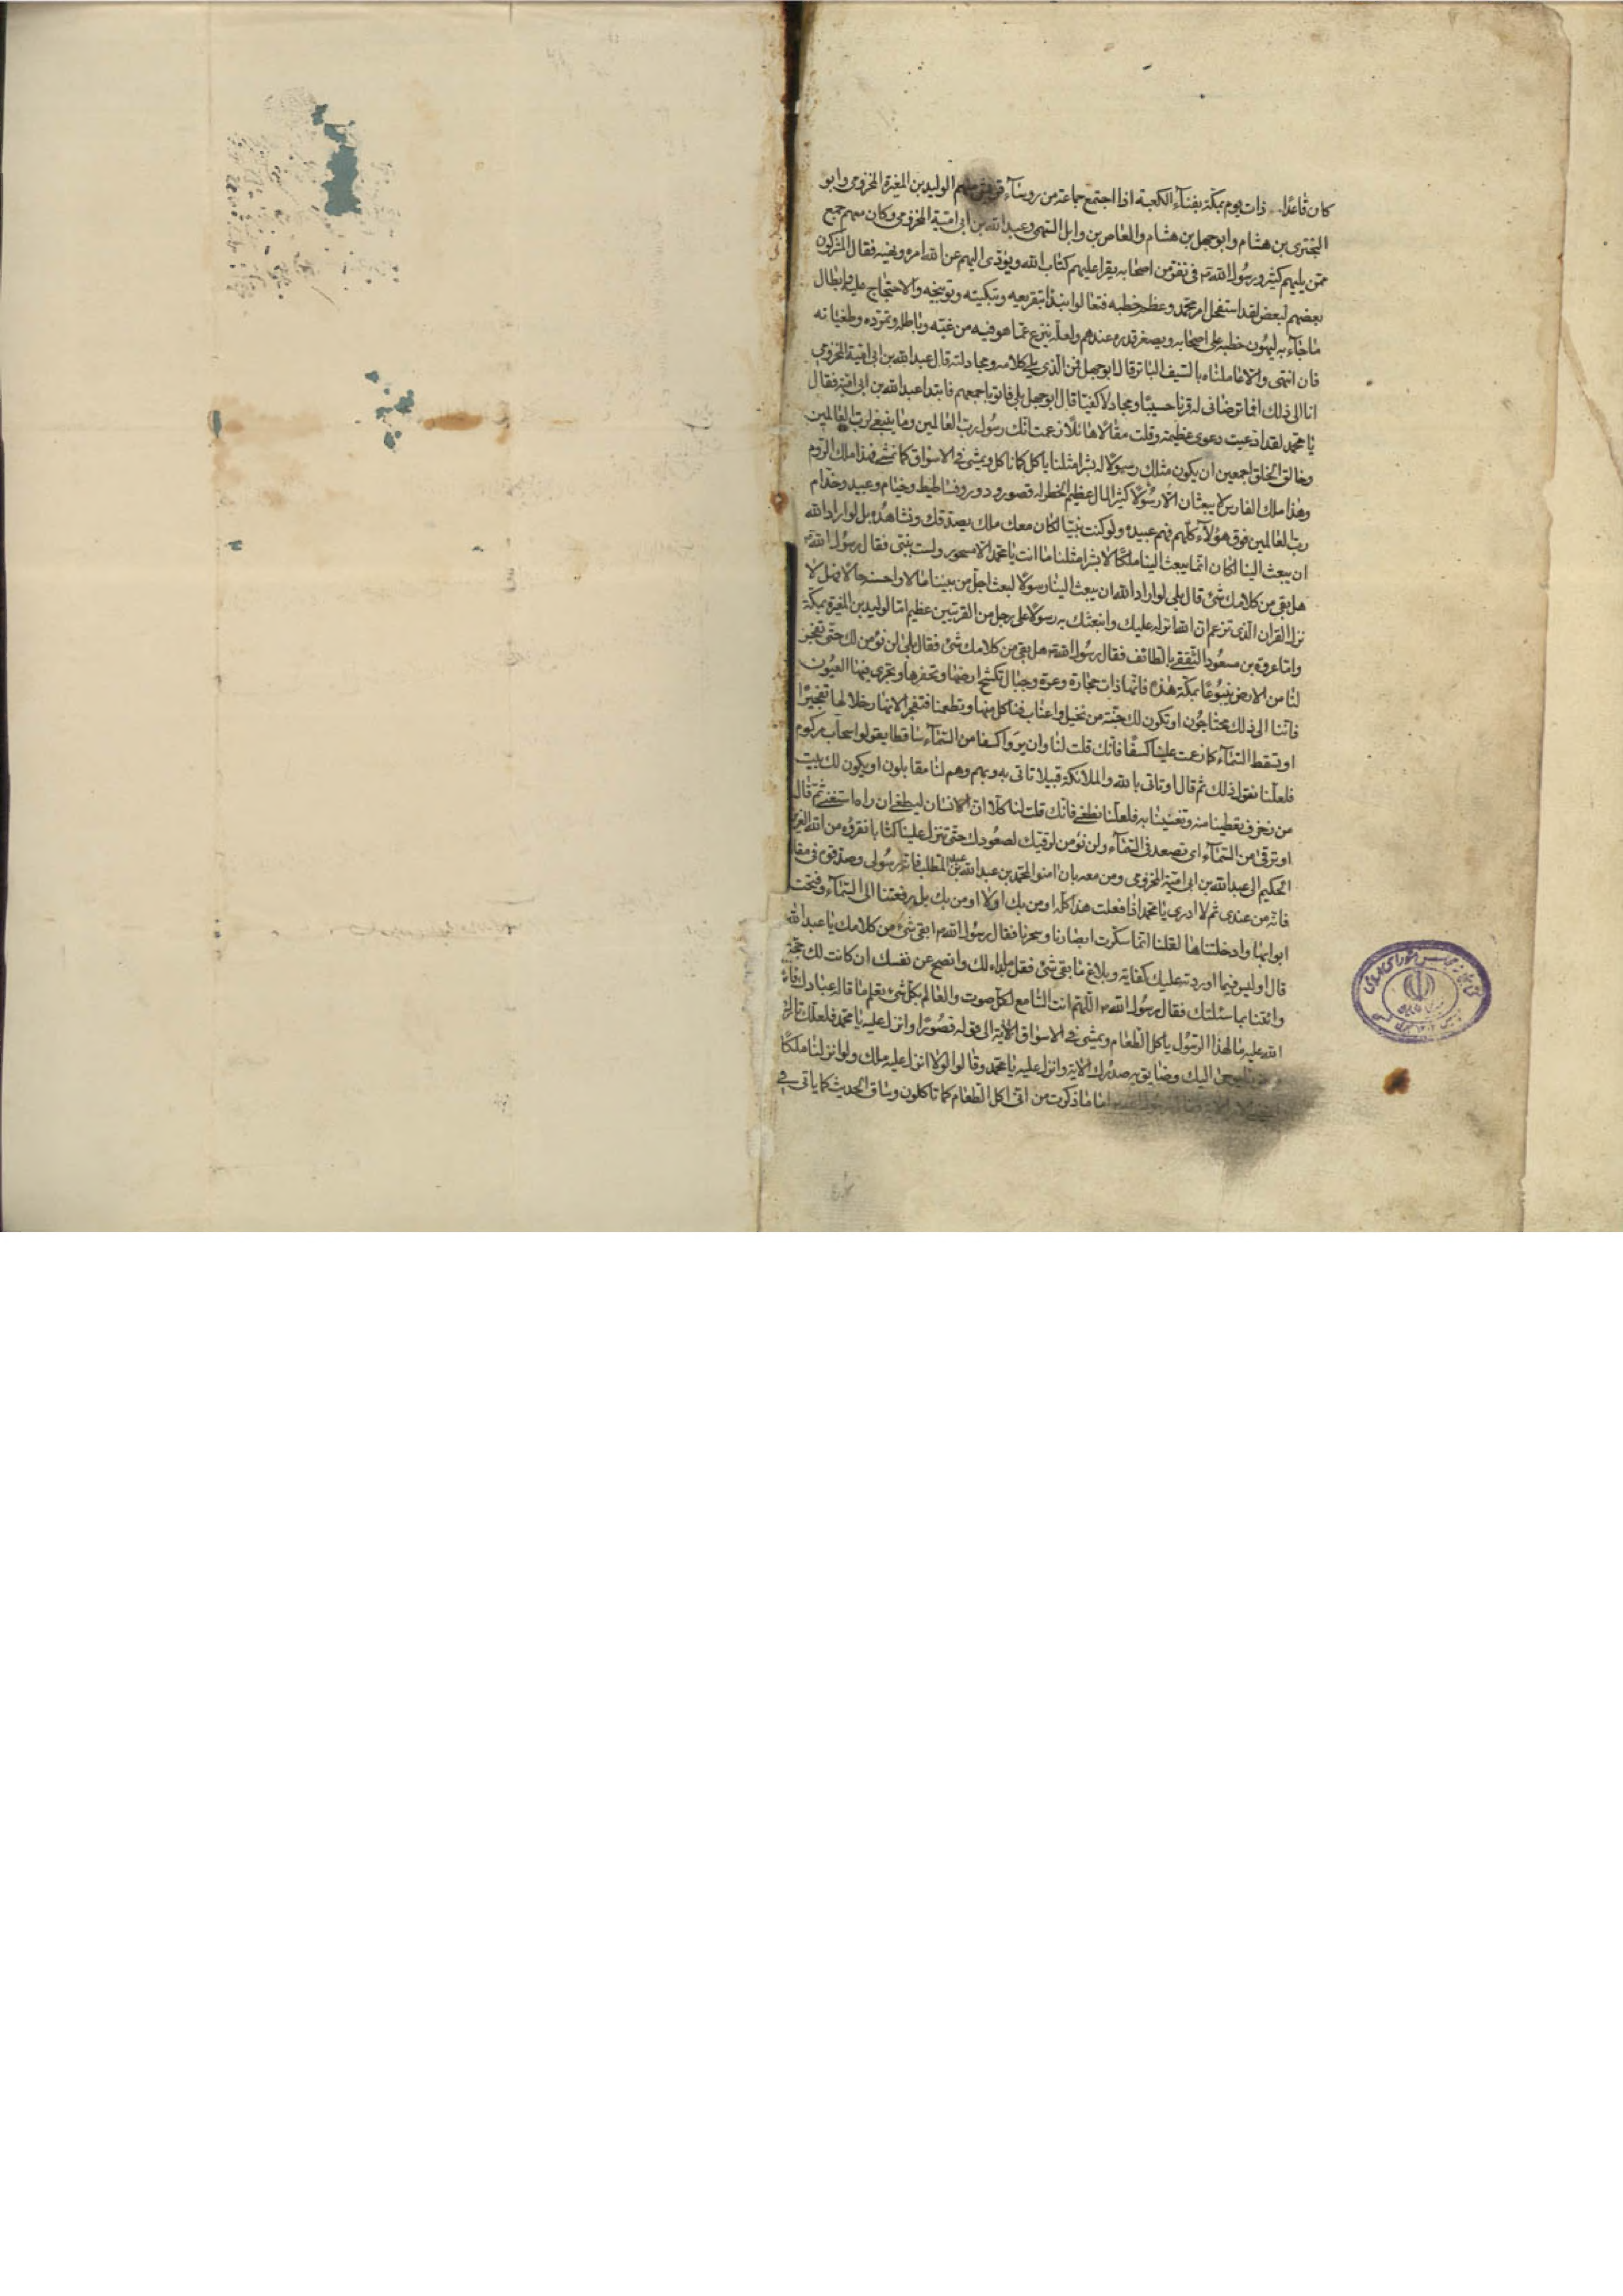 كان قاعدًا ذات يوم بمكة بفناء الكعبة اذا اجتمع جماعة من روساء قريش منهم الوليد بن المغيرة المخزومي وابو
البختري بن هشام وابوجهل بن هشام والعاص بن وابل السهمي وعبد الله بن ابي امية المخزومي وكان معهم جمع
ممن يليهم كثير ورسول الله في نفر من اصحابه يقرا عليهم كتاب الله ويؤدي اليهم عن الله امره ونهيه فقال المشركون
بعضهم لبعض لقد استفحل امر محمد وعظم خطبه فتعالوا نبدا بتقريعه وتبكيته وتوبيخه والاحتجاج عليه وابطال
ما جاء به ليهون خطبه على اصحابه ويصغر قدره عندهم ولعله ينزع عما هو فيه من غيه وباطله وتمرده وطغيانه
فان انتهى والا عاملناه بالسيف الباتر قال ابوجهل فمن الذي يلي كلامه ومجادلته قال عبد الله بن ابي امية المخزومي
انا الى ذلك افما ترضاني له قرنا حسيبًا ومجادلا كفيًا قال ابوجهل بلى فاتوه باجمعهم فابتدا عبد الله بن ابي امية فقال
يا محمد لقد ادعيت دعوى عظيمة وقلت مقالا هائلا زعمت انك رسول رب العالمين وما ينبغي لرب العالمين
وخالق الخلق اجمعين ان يكون مثلك رسولا له بشرا مثلنا ياكل كما ناكل ويمشي في الاسواق كما نمشي فهذا ملك الروم
وهذا ملك الفارس لا يبعثان الا رسولا كثير المال عظيم الخطر له قصور ودور وفساطيط وخيام وعبيد وخدام
رب العالمين فوق هؤلاء كلهم فهم عبيده ولو كنت نبيا لكان معك ملك يصدقك ونشاهده بل لو اراد الله
ان يبعث الينا لكان انما يبعث الينا ملكًا لا بشرا مثلنا ما انت يا محمد الا مسحور ولست بنبي فقال رسول الله
هل بقي من كلامك شئ قال بلى لو اراد الله ان يبعث الينا رسولا لبعث اجل من بيننا مالا واحسنه حالا فهل لا
نزل القران الذي تزعم ان الله انزله عليك وانبعثك به رسولا على رجل من القريتين عظيم اما الوليد بن المغيرة بمكة
واما عروة بن مسعود الثقفي بالطائف فقال رسول الله هل بقي من كلامك شئ فقال بلى لن نؤمن لك حتى تفجر
لنا من الارض ينبوعًا بمكة هذه فانها ذات حجارة وعرة وجبال تكسح ارضها وتحفرها وتجري فيها العيون
فاننا الى ذلك محتاجون او تكون لك جنة من نخيل واعناب فناكل منها وتطعمنا فتفجر الانهار خلالها تفجيرًا
او تسقط السماء كما زعمت علينا كسفًا فانك قلت لنا وان يروا كسفا من السماء ساقطا يقولوا سحاب مركوم
فلعلنا نقول ذلك ثم قال او تاتي بالله والملائكة قبيلا تاتي به وبهم وهم لنا مقابلون او يكون لك بيت
من زخرف تعطينا منه وتغنينا به فلعلنا نطغى فانك قلت لنا كلا ان الانسان ليطغى ان راه استغنى ثم قال
او ترقى من السماء اي تصعد في السماء ولن نؤمن لرقيك لصعودك حتى تنزل علينا كتابا نقرؤه من الله العزيز
الحكيم الى عبد الله بن ابي امية المخزومي ومن معه بان امنوا لمحمد بن عبد الله بن عبد المطلب فانه رسولي وصدقوه في مقا
فانه من عندي ثم لا ادري يا محمد اذا فعلت هذا كله اومن بك او لا اومن بك بل لو رفعتنا الى السماء وفتحت
ابوابها وادخلتناها لقلنا انما سكرت ابصارنا وسحرنا فقال رسول الله ابقي شئ من كلامك يا عبد الله
قال اوليس فيما اوردته عليك كفاية وبلاغ ما بقي شئ فقل ما بدا لك وانصح عن نفسك ان كانت لك حجة
وائتنا بما سئلتك فقال رسول الله اللهم انت السامع لكل صوت والعالم بكل شئ تعلم ما قاله عبادك فانزل
الله عليه ما لهذا الرسول ياكل الطعام ويمشي في الاسواق الاية الى قوله قصورًا وانزل عليه يا محمد فلعلك تارك
يوحى اليك وضايق به صدرك الاية وانزل عليه يا محمد وقالوا لولا انزل عليه ملك ولو انزلنا ملكًا
اما ما ذكرت من اني اكل الطعام كما تاكلون وساق الحديث كما ياتي في